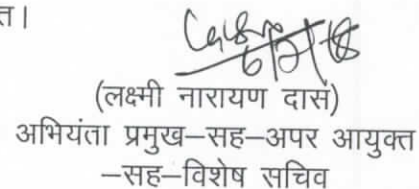 त।
(लक्ष्मी नारायण दास)
अभियंता प्रमुख–सह–अपर आयुक्त
–सह–विशेष सचिव